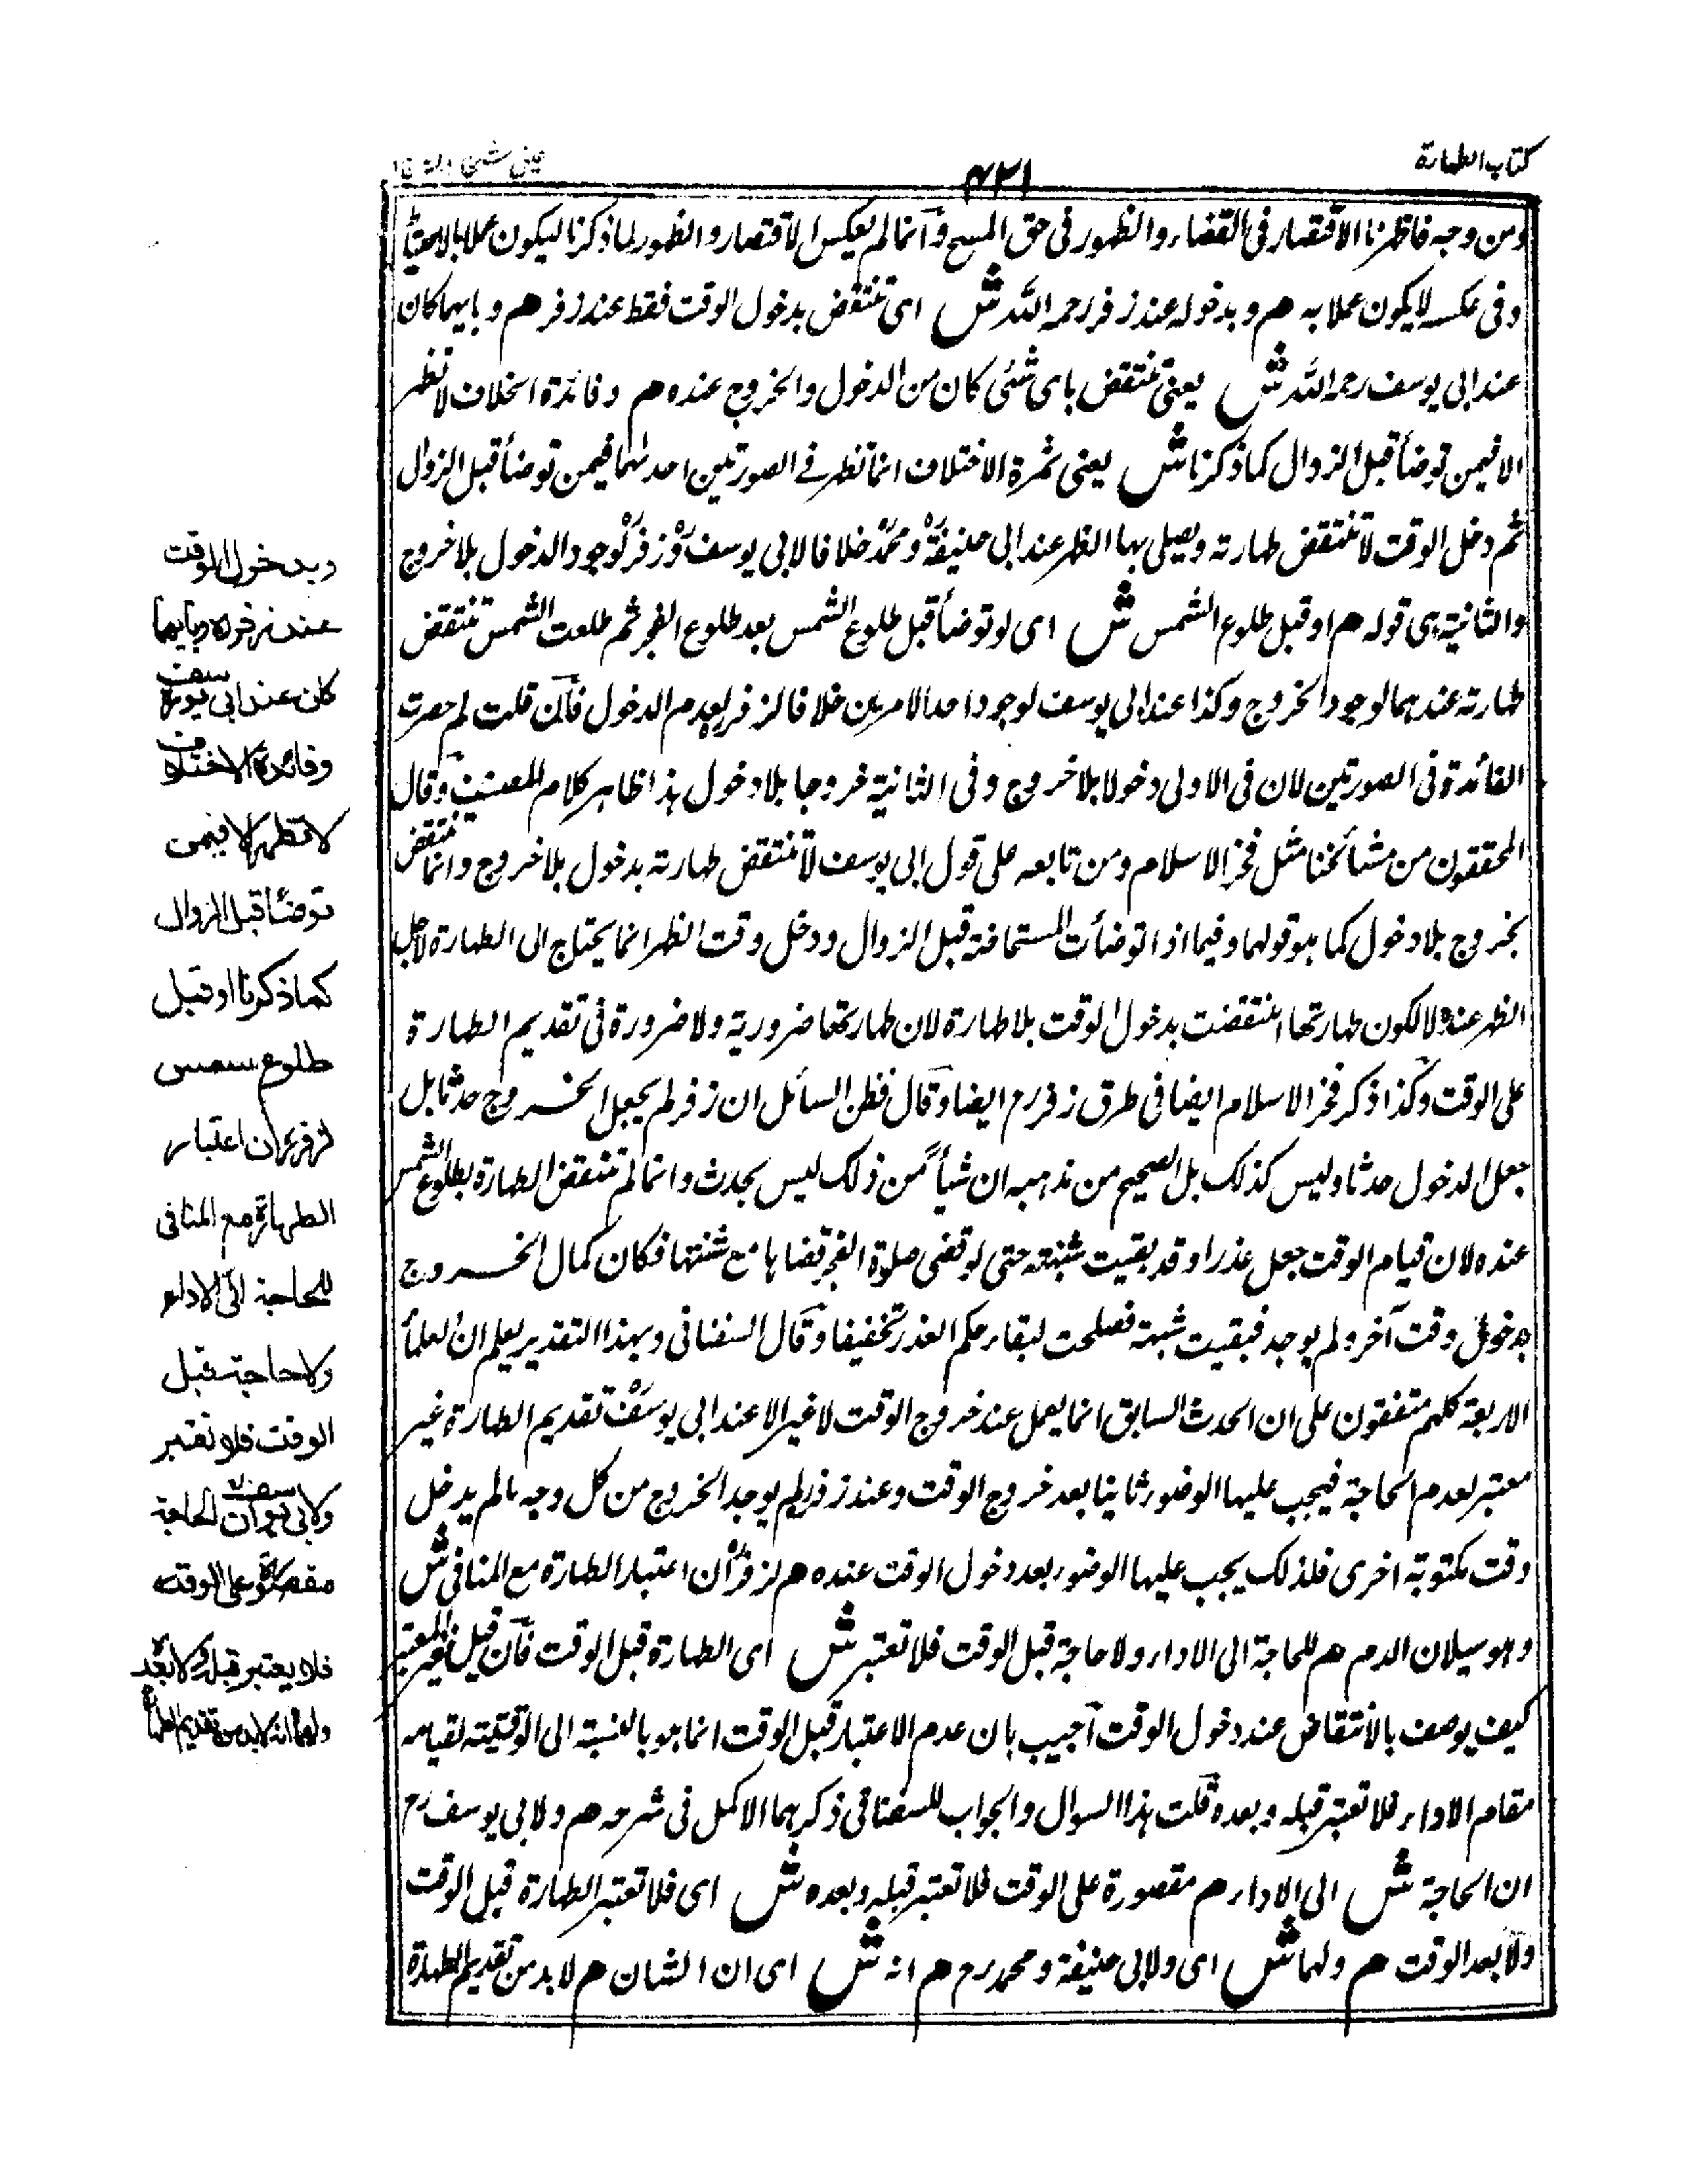 كتاب الطهارة
٤٢١
عينى شرح
ومن وجه فاظهرنا الاقتصار فى القضاء والظهور فى حق المسح وانما لم يعكس الاقتصار والظهور لما ذكرنا ليكون عملا بالاحتياط
وفى عكسه لا يكون عملا به هم وبدخوله عند زفر رحمه الله ش اى تنتقض بدخول الوقت فقط عند زفر هم وبايهما كان
عند ابى يوسف رحمه الله ش يعنى تنتقض باى شئى كان من الدخول والخروج عنده هم وفائدة الخلاف لا تظهر
الا فيمن توضأ قبل الزوال كما ذكرنا ش يعنى ثمرة الاختلاف انما تظهر فى الصورتين احدلهما فيمن توضأ قبل الزوال
ثم دخل الوقت لا تنتقض طهارته ويصلى بها الظهر عند ابى حنيفة ومحمد خلافا لابى يوسف وزفر لوجود الدخول بلا خروج
والثانية هى قوله هم او قبل طلوع الشمس ش اى لو توضأ قبل طلوع الشمس بعد طلوع الفجر ثم طلعت الشمس تنتقض
طهارته عندهما لوجود الخروج وكذا عند ابى يوسف لوجود احد الامرين خلافا لزفر لعدم الدخول فان قلت لم حصرت
الفائدة فى الصورتين لان فى الاولى دخولا بلا خروج وفى الثانية خروجا بلا دخول هذا ظاهر كلام المصنف وقال
المحققون من مشائخنا مثل فخر الاسلام ومن تابعه على قول ابى يوسف لا تنتقض طهارته بدخول بلا خروج وانما تنتقض
بخروج بلا دخول كما هو قولهما وفيما اذا توضأت المستحاضة قبل الزوال ودخل وقت الظهر انما يحتاج الى الطهارة لاجل
الظهر عنده لا لكون طهارتها انتقضت بدخول الوقت بلا طهارة لان طهارتها ضرورية ولا ضرورة فى تقديم الطهارة
على الوقت وكذا ذكر فخر الاسلام ايضا فى طرق زفر رح ايضا وقال فظن السائل ان زفر لم يجعل الخروج حدثا بل
جعل الدخول حدثا وليس كذلك بل الصحيح من مذهبه ان شيأ من ذلك ليس بحدث وانما لم تنتقض الطهارة بطلوع الشمس
عنده لان قيام الوقت جعل عذرا وقد بقيت شبهته حتى لو قضى صلوة الفجر قضاها مع سنتها فكان كمال الخروج
بدخول وقت آخر ولم يوجد فبقيت شبهة فصلحت لبقاء حكم العذر تخفيفا وقال السغناقى وبهذا التقدير يعلم ان العلمأ
الاربعة كلهم متفقون على ان الحدث السابق انما يعمل عند خروج الوقت لا غير الا عند ابى يوسف تقديم الطهارة غير
معتبر لعدم الحاجة فيجب عليها الوضوء ثانيا بعد خروج الوقت وعند زفر لم يوجد الخروج من كل وجه مالم يدخل
وقت مكتوبة اخرى فلذلك يجب عليها الوضوء بعد دخول الوقت عنده هم لزفر ان اعتبار الطهارة مع المنافى ش
وهو سيلان الدم هم للحاجة الى الاداء ولا حاجة قبل الوقت فلا تعتبر ش اى الطهارة قبل الوقت فان قيل غير المعتبر
كيف يوصف بالانتقاض عند دخول الوقت اجيب بان عدم الاعتبار قبل الوقت انما هو بالنسبة الى الوقتية لقيامه
مقام الاداء فلا تعتبر قبله وبعده قلت هذا السوال والجواب للسغناقى ذكرهما الاكمل فى شرحه هم ولابى يوسف رح
ان الحاجة ش الى الاداء هم مقصورة على الوقت فلا تعتبر قبله وبعده ش اى فلا تعتبر الطهارة قبل الوقت
ولا بعد الوقت هم ولهما ش اى ولابى حنيفة ومحمد رح هم انه ش اى ان الشان هم لا بد من تقديم الطهارة
وبدخول الوقت
عند زفر وبايهما
كان عند ابى يوسف
وفائدة الاختلاف
لا تظهر الا فيمن
توضأ قبل الزوال
كما ذكرنا او قبل
طلوع شمس
لزفر ان اعتبار
الطهارة مع المنافى
للحاجة الى الاداء
ولا حاجة قبل
الوقت فلا تعتبر
ولابى يوسف ان الحاجة
مقصورة على الوقت
فلا يعتبر قبله ولا بعده
ولهما انه لا بد من تقديم الطهارة